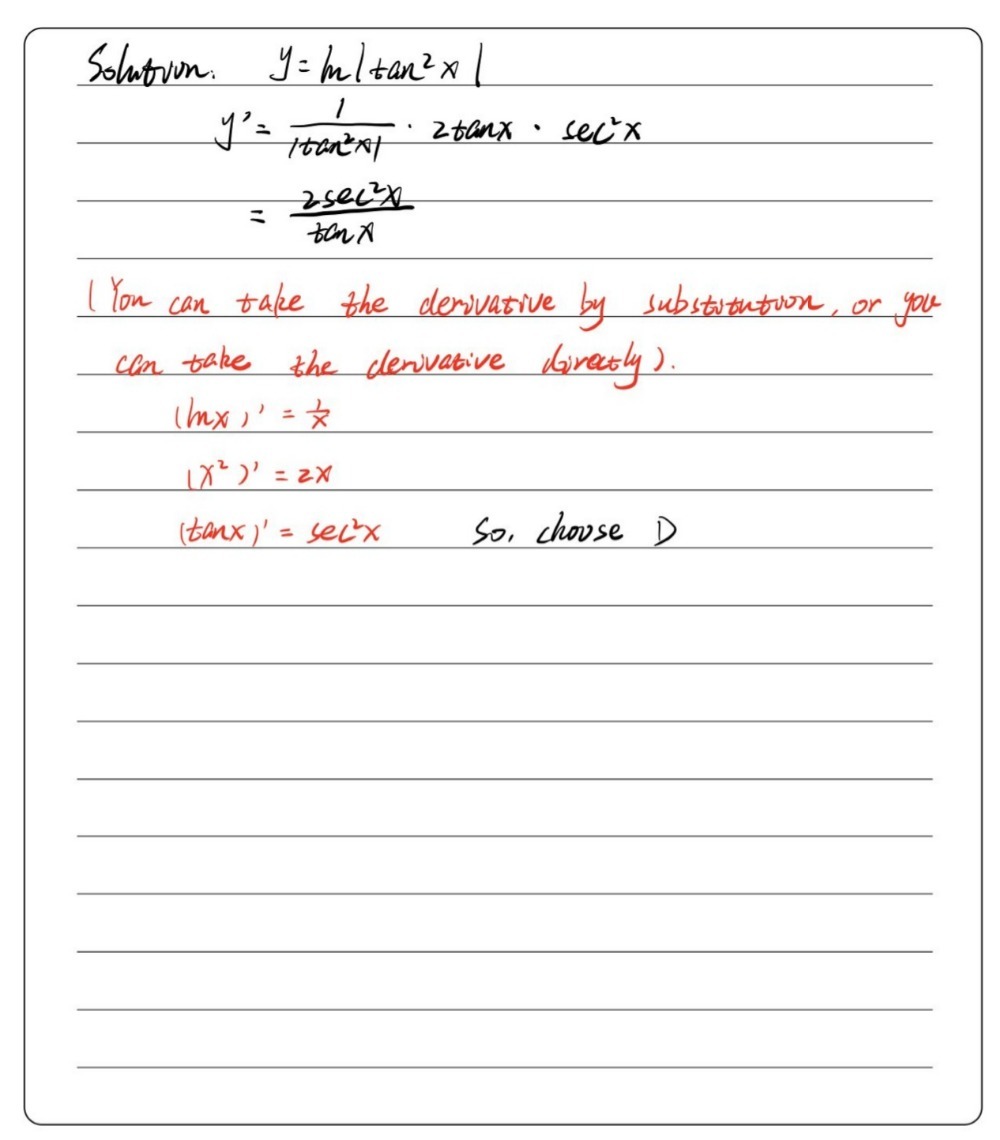 Solution. y = ln|tan²x|
y' = 1/|tan²x| · 2tanx · sec²x
= 2sec²x/tanx
(You can take the derivative by substitution, or you
can take the derivative directly).
(lnx)' = 1/x
(x²)' = 2x
(tanx)' = sec²x So, choose D